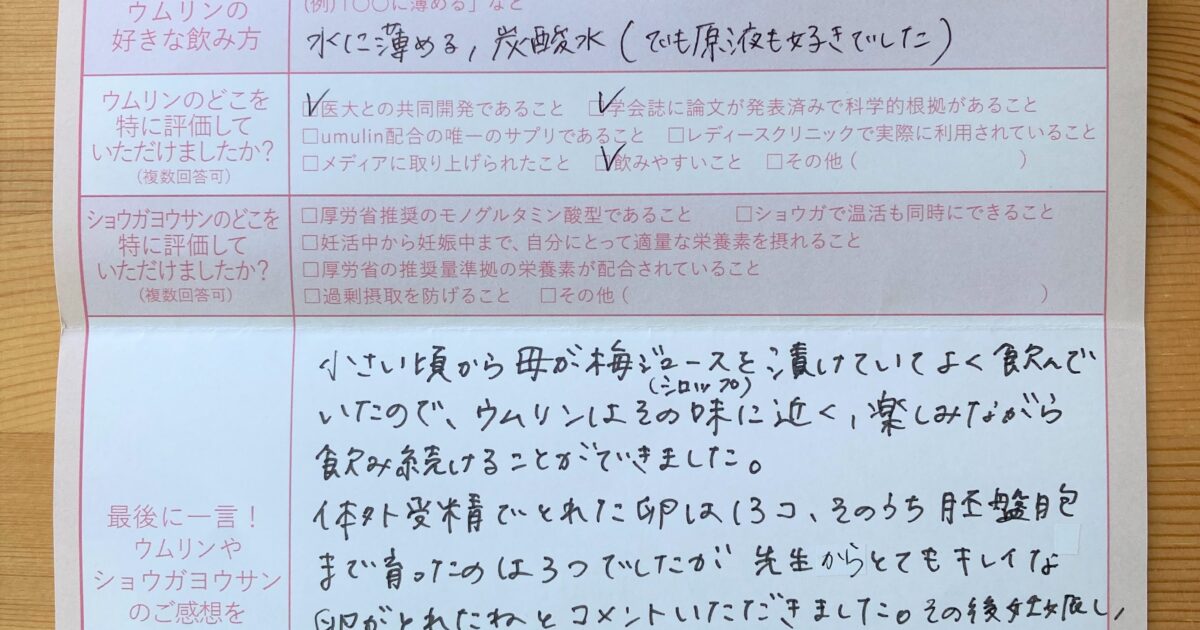 ウムリンの
好きな飲み方
(例)「〇〇に薄める」など
水に薄める, 炭酸水(でも原液も好きでした)
ウムリンのどこを
特に評価して
いただけましたか?
(複数回答可)
□医大との共同開発であること □学会誌に論文が発表済みで科学的根拠があること
□umulin配合の唯一のサプリであること □レディースクリニックで実際に利用されていること
□メディアに取り上げられたこと □飲みやすいこと □その他( )
ショウガヨウサンのどこを
特に評価して
いただけましたか?
(複数回答可)
□厚労省推奨のモノグルタミン酸型であること □ショウガで温活も同時にできること
□妊活中から妊娠中まで、自分にとって適量な栄養素を摂れること
□厚労省の推奨量準拠の栄養素が配合されていること
□過剰摂取を防げること □その他( )
最後に一言!
ウムリンや
ショウガヨウサン
のご感想を
小さい頃から母が梅ジュースを漬けていてよく飲んで
(シロップ)
いたので、ウムリンはその味に近く,楽しみながら
飲み続けることができました。
体外受精でとれた卵は13コ、そのうち胚盤胞
まで育ったのは3つでしたが 先生からとてもキレイな
卵がとれたねとコメントいただきました。その後妊娠し,